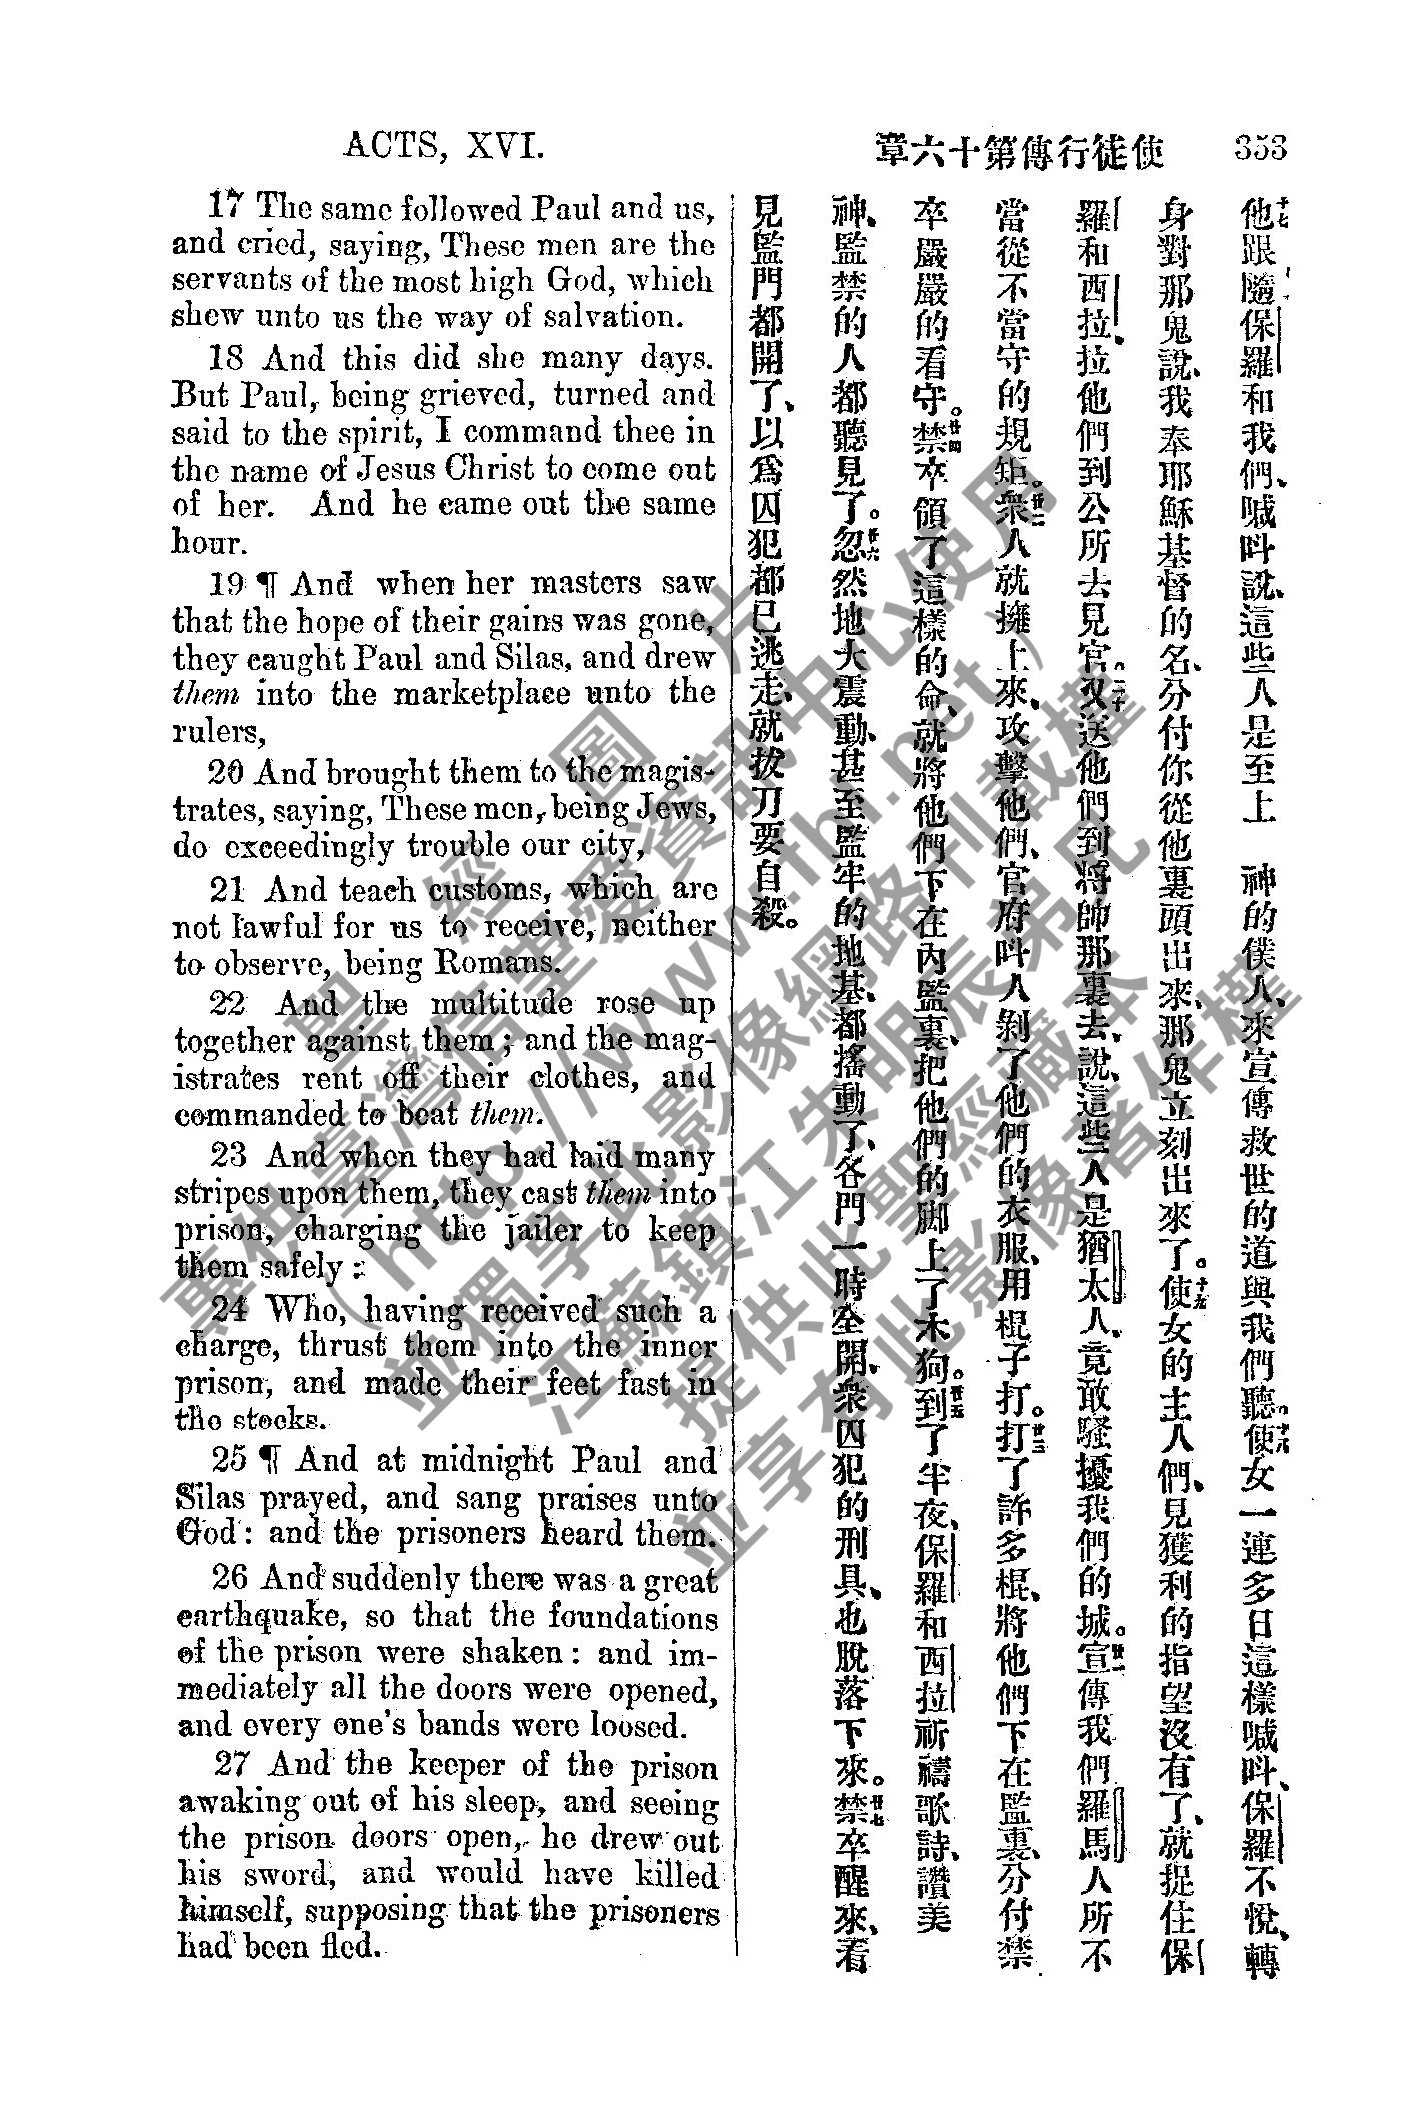 ACTS, XVI.
使徒行傳第十六章
353
17 The same followed Paul and us,
and cried, saying, These men are the
servants of the most high God, which
shew unto us the way of salvation.
18 And this did she many days.
But Paul, being grieved, turned and
said to the spirit, I command thee in
the name of Jesus Christ to come out
of her. And he came out the same
hour.
19 ¶ And when her masters saw
that the hope of their gains was gone,
they caught Paul and Silas, and drew
them into the marketplace unto the
rulers,
20 And brought them to the magis-
trates, saying, These men, being Jews,
do exceedingly trouble our city,
21 And teach customs, which are
not lawful for us to receive, neither
to observe, being Romans.
22 And the multitude rose up
together against them; and the mag-
istrates rent off their clothes, and
commanded to beat them.
23 And when they had laid many
stripes upon them, they cast them into
prison, charging the jailer to keep
them safely:
24 Who, having received such a
charge, thrust them into the inner
prison, and made their feet fast in
the stocks.
25 ¶ And at midnight Paul and
Silas prayed, and sang praises unto
God: and the prisoners heard them.
26 And suddenly there was a great
earthquake, so that the foundations
of the prison were shaken: and im-
mediately all the doors were opened,
and every one's bands were loosed.
27 And the keeper of the prison
awaking out of his sleep, and seeing
the prison doors open, he drew out
his sword, and would have killed
himself, supposing that the prisoners
had been fled.
十七他跟隨保羅和我們、喊呌說、這些人是至上　神的僕人、來宣傳救世的道與我們聽。十八使女一連多日這樣喊呌、保羅不悅、轉
身對那鬼說、我奉耶穌基督的名、分付你從他裏頭出來、那鬼立刻出來了。十九使女的主人們、見獲利的指望沒有了、就捉住保
羅和西拉、拉他們到公所去見官。二十又送他們到將帥那裏去、說、這些人是猶太人、竟敢騷擾我們的城。廿一宣傳我們羅馬人所不
當從不當守的規矩。廿二衆人就擁上來、攻擊他們、官府呌人剝了他們的衣服、用棍子打。廿三打了許多棍、將他們下在監裏、分付禁
卒嚴嚴的看守。廿四禁卒領了這樣的命、就將他們下在內監裏、把他們的脚上了木狗。廿五到了半夜、保羅和西拉祈禱歌詩、讚美
神、監禁的人都聽見了。廿六忽然地大震動、甚至監牢的地基、都搖動了、各門一時全開、衆囚犯的刑具、也脫落下來。廿七禁卒醒來、看
見監門都開了、以爲囚犯都已逃走、就拔刀要自殺。
聖經圖片
重供臺灣信望愛資訊中心使用
(http://www.fhl.net)
並獨享此影像網路刊載權
江蘇鎮江朱明辰弟兄
提供此聖經藏本
並享有此影像著作權